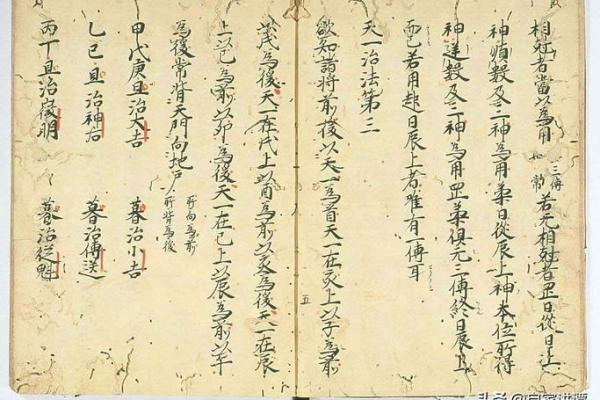 相尅者當以為用 三傳 和常 若无相尅者罡日從日上
神順數及二神為用柔日從辰上神本位所得
神逆數及二神為用罡柔俱无三傳終日辰上
而已若用起日辰上者唯有一傳耳
天一治法第三
欲知諸將前後以天一為首天一在亥上以子為前
以戌為後天一在戌上以酉為前以亥為後天一在辰
上以巳為前以卯為後天一在巳上以辰為前以午
為後常背天門向地戸 所向為前 所背為後
甲戊庚旦治大吉 暮治小吉
乙己旦治神后 暮治傳送
丙丁旦治徴明 暮治從魁
五
头条